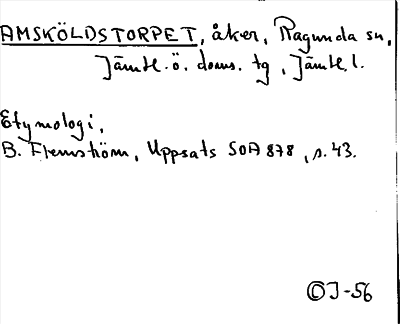 AMSKÖLDSTORPET, åker, Ragunda sn,
Jämtl. ö. doms. tg, Jämtl. l.
Etymologi,
B. Flemström, Uppsats SOA 878, s. 43.
©J-56